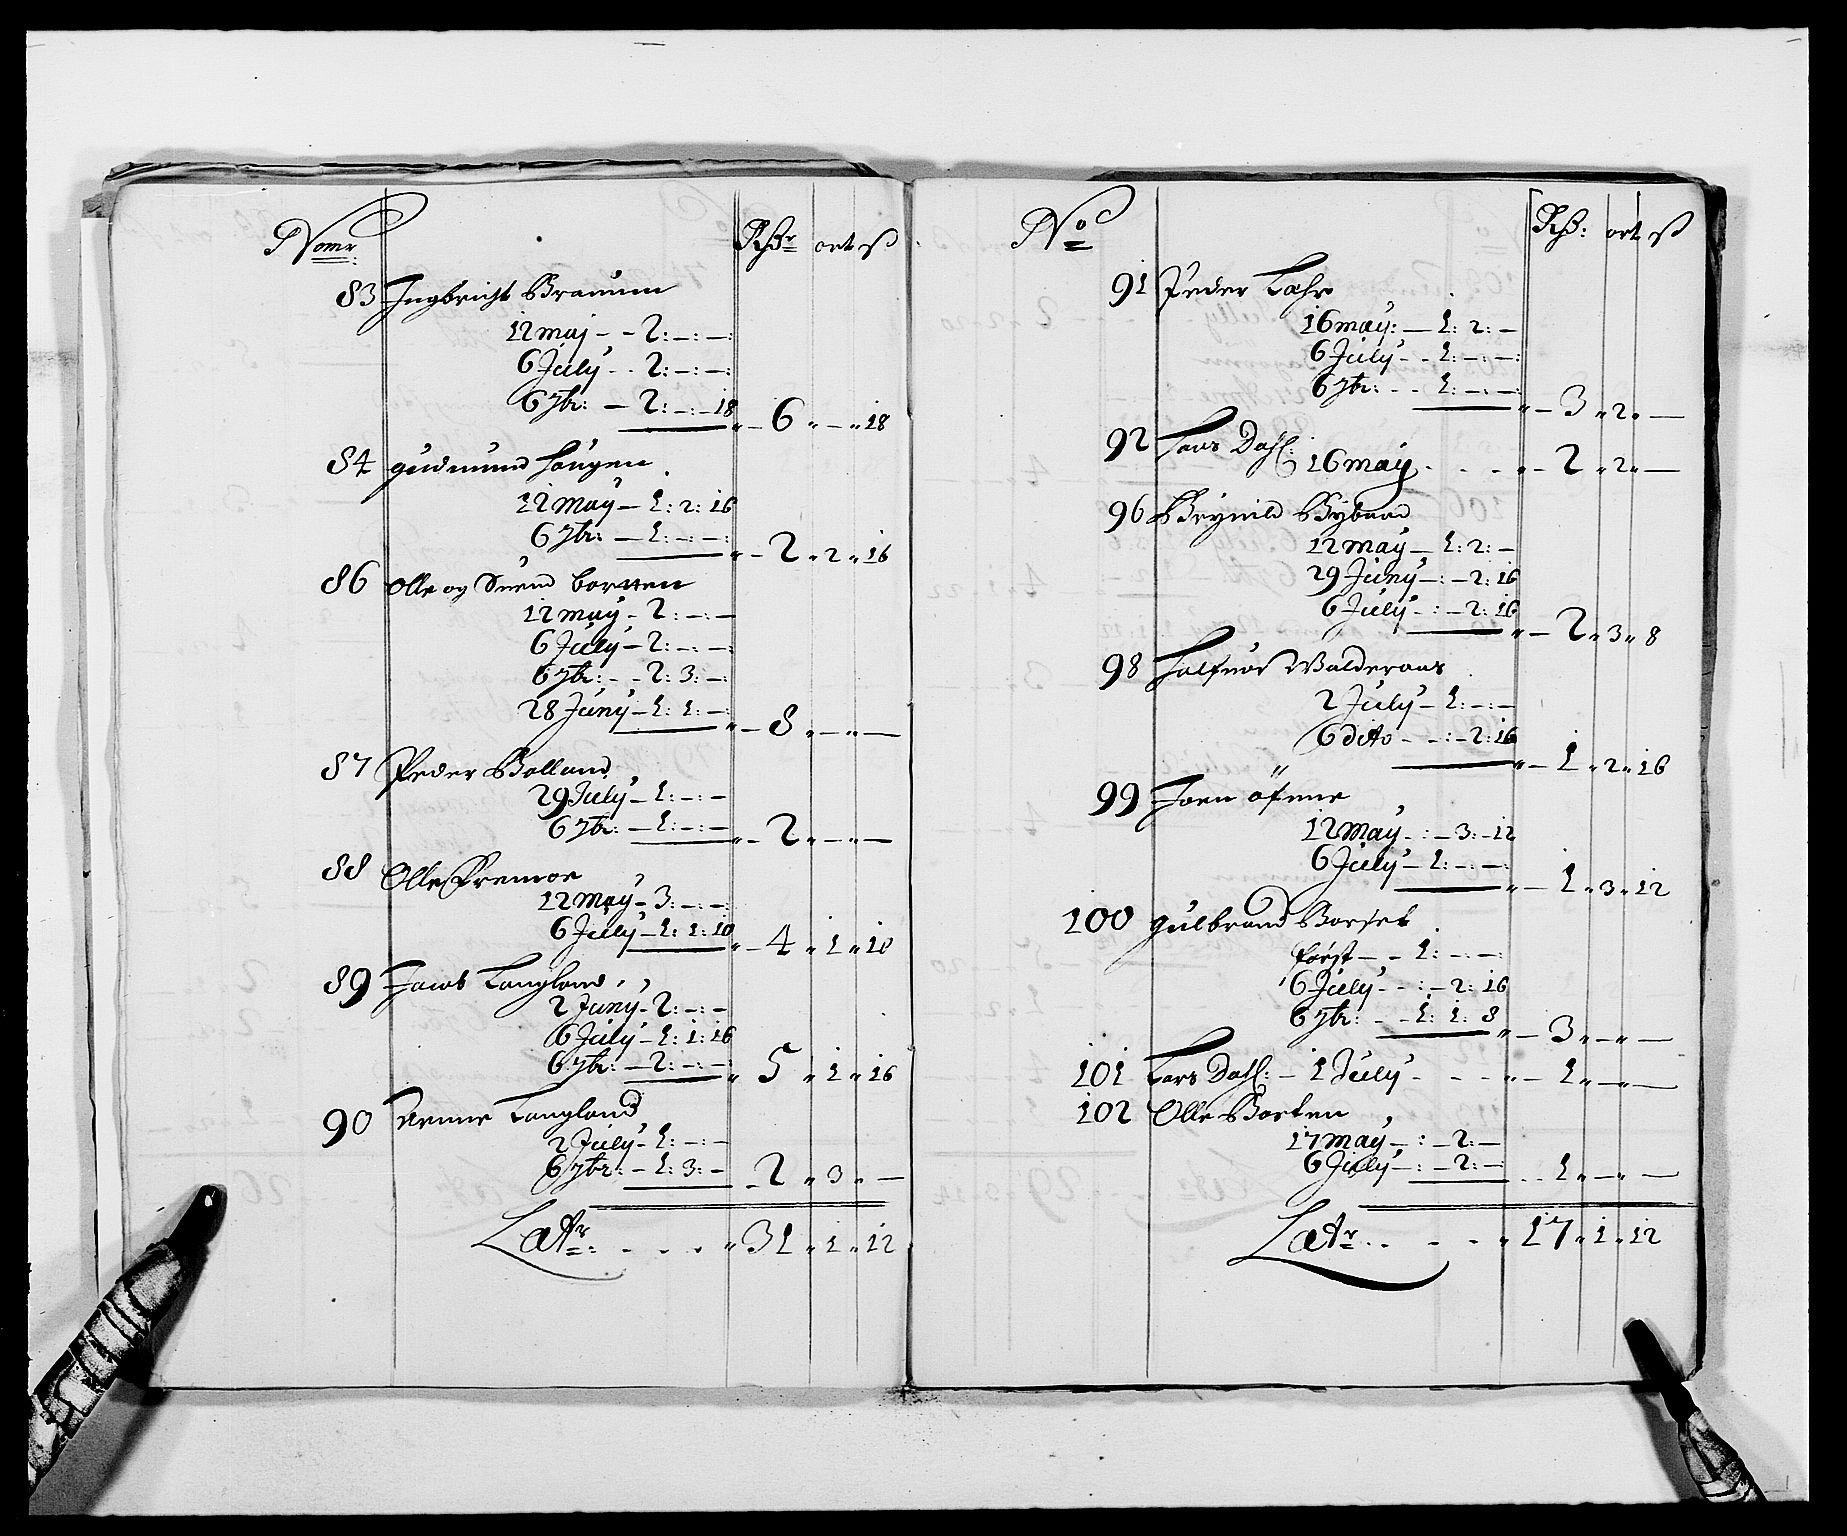 Nomr Rdr ort ß
83 Ingbricht Bramm
12 maj - - 2: - : - :
6 July - - 2: - : - :
6 7br: - 2: - : - 18 " - 6 " - " 18
84 gudmund haugen
12 May - 1: 2: 16
6 7br: - 1: - : - " - 2 " 2 " 16
86 Olle og Suend borten
12 may - 2: - : -
6 July - 2: - : -
6 7br: - - 2: 3: -
28 Juny - 1: 1: - " - 8 " - " -
87 Peder Bolland
29 July - 1: - : -
6 7br: - 1: - : - " - 2 " - " -
88 Olle Kremoe
12 May - 3: - : -
6 July - 1: 1: 10 " - 4 " 1 " 10
89 Jacob Langland
2 Juny - 2: - : -
6 July - 1: 1: 16
6 7br: - 2: - : - " 5 " 1 " 16
90 Arnne Langland
2 July - 1: - : -
6 7br: - 1: 3: - - 2 " 3 " -
Latr: - - - " 31 " 1 " 12
No Rd: ort ß
91 Peder Lohr
16 may: - 1: 2: -
6 July - - 1: - : - :
6 7br: - - 1: - : - : " - 3 " 2 " -
92 Lars Dahl:
16 may - - - " - 2 " 2 " -
96 Brynild Bybrod
12 may - 1: 2: -
29 Juny - : - 2: 16
6 July - : - 2: 16 " - 2 " 3 " 8
98 Halfuor Walderaas
2 July - 1: - : -
6 dito - - : - 2: 16 " - 1 " 2 " 16
99 Joen öfrne
12 May - : - 3: - 12
6 July - 1: - : - : " - 1 " 3 " 12
100 gulbrand Borset
først - - 1: - : - :
6 July - - : - 2: 16
6 7br: - - 1: 1: 8 " - 3 " - " -
101 Lars Dahl: - 1 July - - - " - 1 " - " -
102 Olle Borten
17 may - : - 2: -
6 July - : - 2: - : - - 1 " - " -
Latr: - - - " 17 " 1 " 12